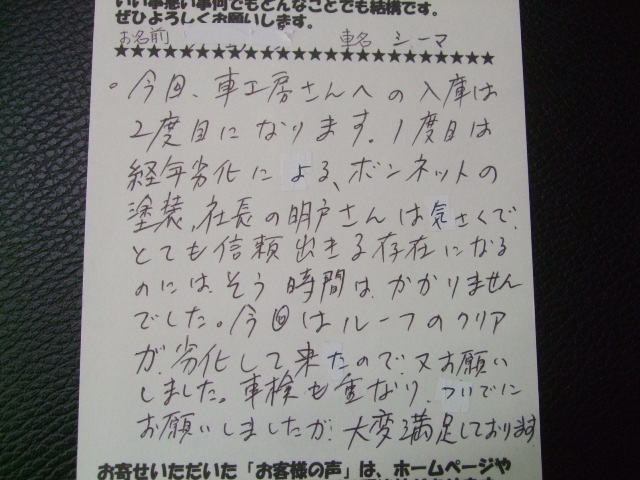 いい事悪い事何でもどんなことでも結構です。
ぜひよろしくお願いします。
お名前 車名 シーマ
★★★★★★★★★★★★★★★★★★★★★★★★★★★★★★
。今回、車工房さんへの入庫は
2度目になります。1度目は
経年劣化による、ボンネットの
塗装、社長の明戸さんは気さくで、
とても信頼出きる存在になる
のには、そう時間は、かかりません
でした。今回はルーフのクリア
が、劣化して来たので、又お願い
しました。車検も重なり、ついでに
お願いしましたが、大変満足しております
お寄せいただいた「お客様の声」は、ホームページや